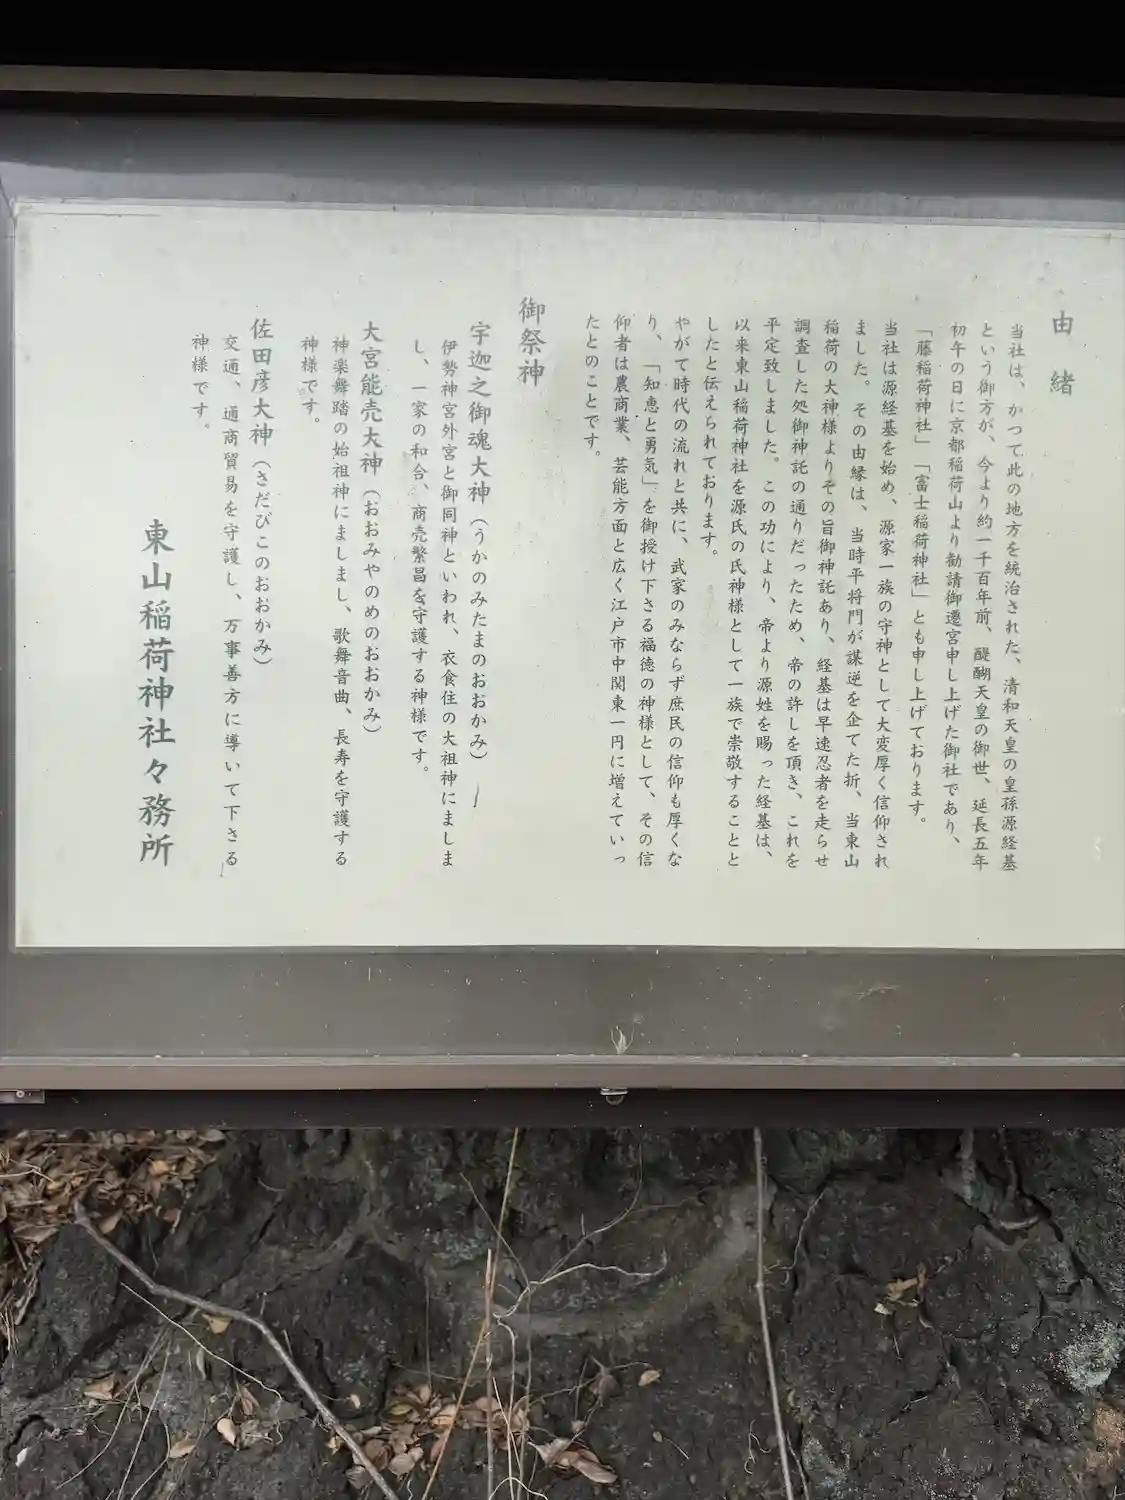 由緒
当社は、かつて此の地方を統治された、清和天皇の皇孫源経基
という御方が、今より約一千百年前、醍醐天皇の御世、延長五年
初午の日に京都稲荷山より勧請御遷宮申し上げた御社であり、
「藤稲荷神社」「富士稲荷神社」とも申し上げております。
当社は源経基を始め、源家一族の守神として大変厚く信仰され
ました。その由縁は、当時平将門が謀逆を企てた折、当東山
稲荷の大神様よりその旨御神託あり、経基は早速忍者を走らせ
調査した処御神託の通りだったため、帝の許しを頂き、これを
平定致しました。この功により、帝より源姓を賜った経基は、
以来東山稲荷神社を源氏の氏神様として一族で崇敬することと
したと伝えられております。
やがて時代の流れと共に、武家のみならず庶民の信仰も厚くな
り、「知恵と勇気」を御授け下さる福徳の神様として、その信
仰者は農商業、芸能方面と広く江戸市中関東一円に増えていっ
たとのことです。
御祭神
宇迦之御魂大神（うかのみたまのおおかみ）
伊勢神宮外宮と御同神といわれ、衣食住の大祖神にましま
し、一家の和合、商売繁昌を守護する神様です。
大宮能売大神（おおみやのめのおおかみ）
神楽舞踏の始祖神にましまし、歌舞音曲、長寿を守護する
神様です。
佐田彦大神（さだびこのおおかみ）
交通、通商貿易を守護し、万事善方に導いて下さる
神様です。
東山稲荷神社々務所